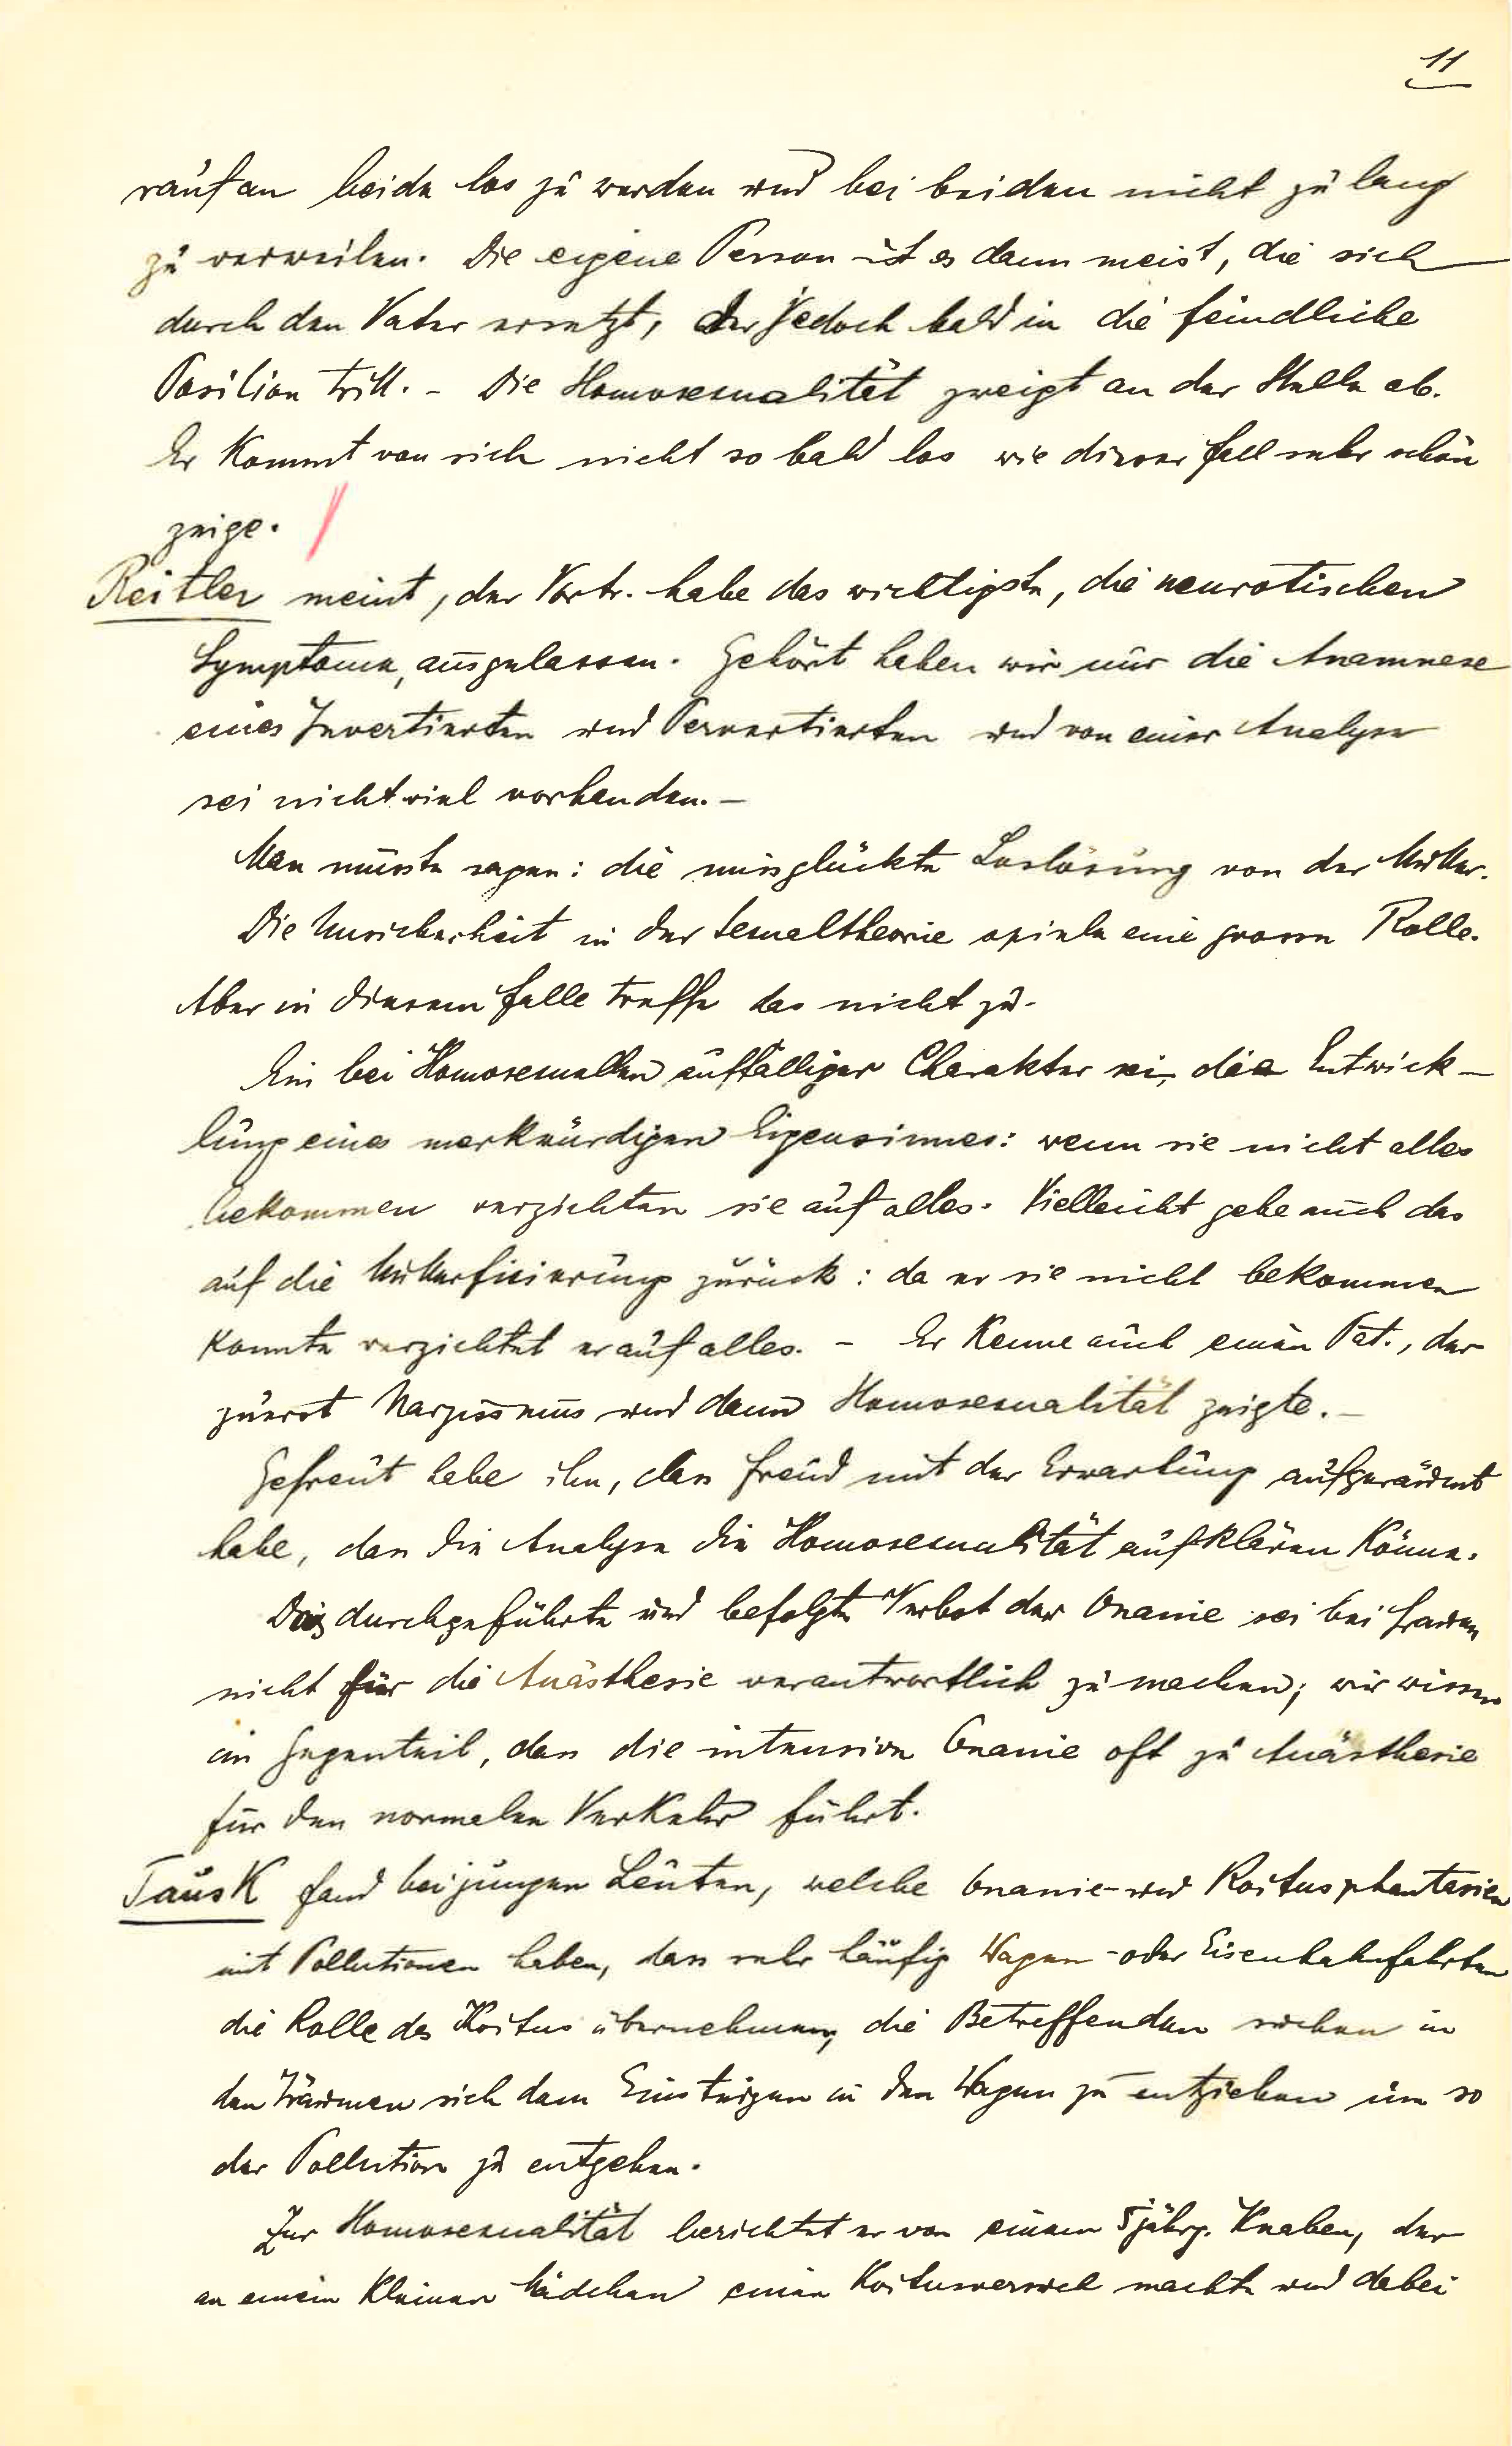 11
rauf an beide los zu werden und bei beiden nicht zu lang
zu verweilen. Die eigene Person ist es dann meist, die sich
durch den Vater ersetzt, der jedoch bald in die feindliche
Position tritt. - Die Homosexualität zweigt an der Stelle ab.
Er kommt von sich nicht so bald los wie dieser Fall sehr schön
zeige.
Reitler meint, der Vortr. habe das wichtigste, die neurotischen
Symptome, ausgelassen. Gehört haben wir nur die Anamnese
eines Invertierten und Pervertierten und von einer Analyse
sei nicht viel vorhanden. -
Man müsste sagen: die missglückte Loslösung von der Mutter.
Die Unsicherheit in der Sexualtheorie spiele eine grosse Rolle.
Aber in diesem Falle treffe das nicht zu.
Ein bei Homosexuellen auffälliger Charakter sei, die Entwick-
lung eines merkwürdigen Eigensinnes: wenn sie nicht alles
bekommen verzichten sie auf alles. Vielleicht gehe auch das
auf die Mutterfixierung zurück: da er sie nicht bekommen
konnte verzichtet er auf alles. - Er kenne auch einen Pat., der
zuerst Narzissmus und dann Homosexualität zeigte. -
Gefreut habe ihn, dass Freud mit der Erwartung aufgeräumt
habe, dass die Analyse die Homosexualität aufklären könne.
Das durchgeführte und befolgte Verbot der Onanie sei bei Frauen
nicht für die Anästhesie verantwortlich zu machen; wir wissen
im Gegenteil, dass die intensive Onanie oft zu Anästhesie
für den normalen Verkehr führt.
Tausk fand bei jungen Leuten, welche Onanie- und Koitusphantasien
mit Pollutionen haben, dass sehr häufig Wagen- oder Eisenbahnfahrten
die Rolle des Koitus übernehmen, die Betreffenden suchen in
den Träumen sich dem Einsteigen in den Wagen zu entziehen um so
der Pollution zu entgehen.
Zur Homosexualität berichtet er von einem 5jährg. Knaben, der
an einem kleinen Mädchen einen Koitusversuch machte und dabei